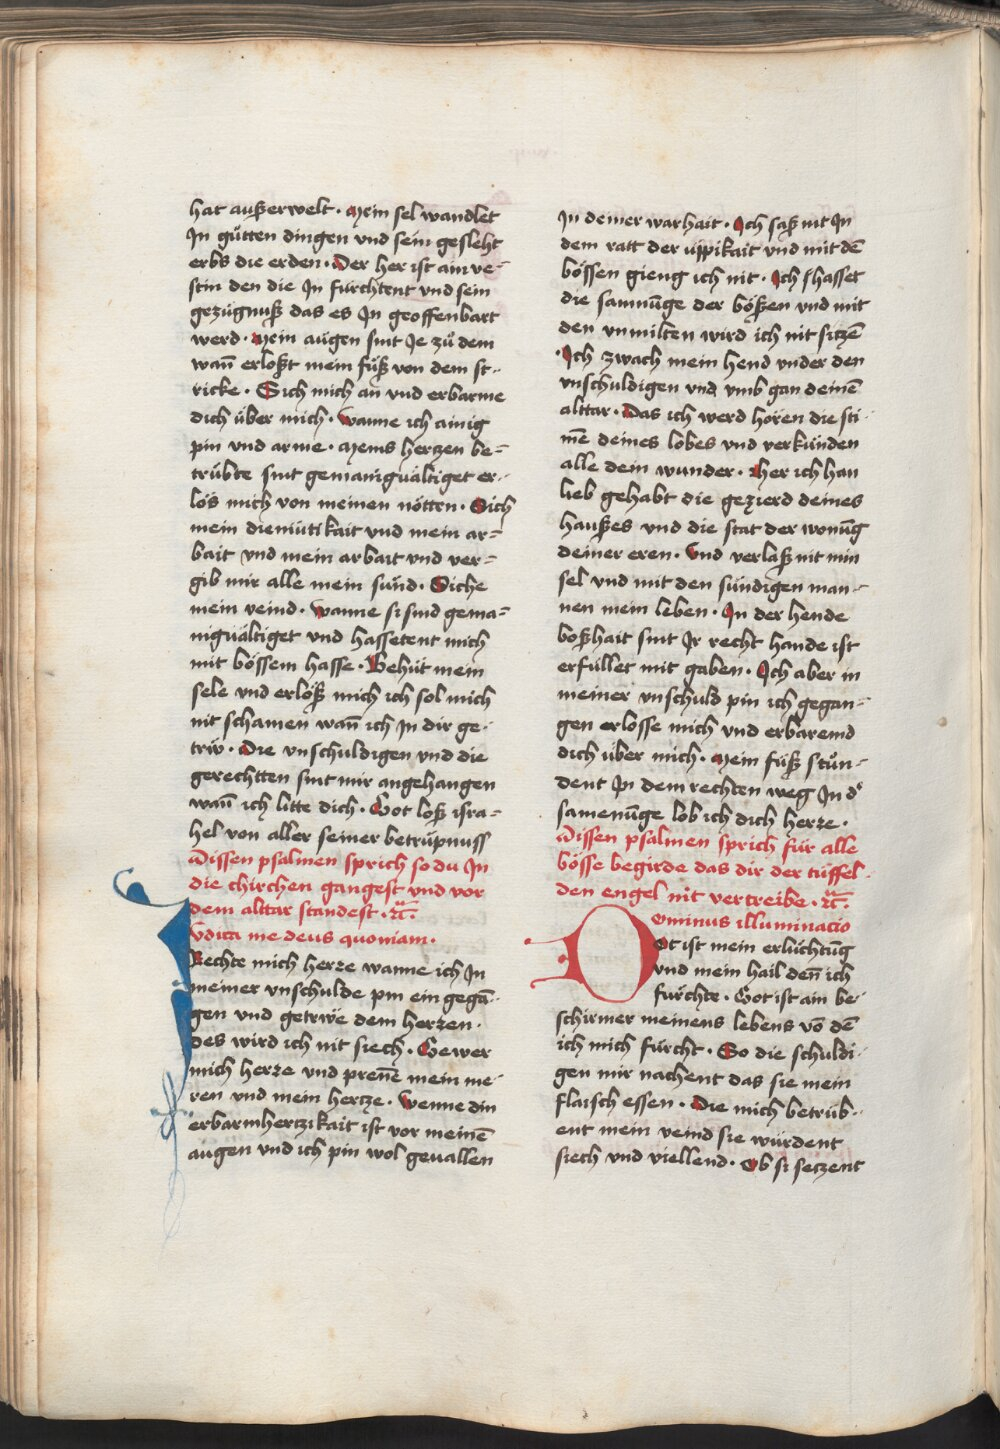 hat außerwelt · Mein sel wandlet
Jn gu̍tten dingen vnd sein gesleht
erbs die erden · Der her ist ain ve-
stin den die Jn fürchtent vnd sein
gezügnuß das es Jn geoffenbart
werd · Mein augen sint Je zů dem
wan̄ erloßt mein fůß von dem st-
ricke · Sich mich an vnd erbarme
dich über mich · Wanne ich ainig
pin vnd arme · Meins hertzen be-
trübte sint gemanigualtiget er-
lös mich von meinen nötten · Sich
mein diemütikait vnd mein ar-
bait vnd mein arbait vnd ver-
gib mir alle mein sünd · Siche
mein veind · Wanne si sind gema-
nigualtiget vnd hassetent mich
mit bössem hasse · Behüt mein
sele vnd erlöß mich ich sol mich
nit schamen wan̄ ich Jn dir ge-
triv · Die vnschuldigen vnd die
gerechtten sint mir angehangen
wan̄ ich litte dich · Got loß isra-
hel von aller seiner betrüpnuss
Dissen psalmen sprich so du Jn
die chirchen gangest vnd vor
dem alttar standest · rc̄.
Judica me deus quoniam ·
Rechte mich herre wanne ich Jn
meiner vnschulde pin ein gegā-
gen vnd getrwe dem herren ·
des wird ich nit siech · Bewer
mich herre vnd pren̄e mein nie-
ren vnd mein hertze · Wenne din
erbarmhertzikait ist vor meinē
augen vnd ich pin wol geuallen
Jn deiner warhait · Ich saß nit Jn
dem ratt der üppikait vnd mit dē
bössen gieng ich nit · Ich hasset
die samnūge der bößen vnd mit
den vnmilten wird ich nit sitzē
· Ich zwach mein hend vnder den
vnschuldigen vnd vmb gan deinē
alttar · Das ich werd hören die sti-
m̄e deines lobes vnd verkünden
alle dein wunder · Her ich han
lieb gehabt die gezierd deines
haußes vnd die stat der wonūg
deiner eren · Vnd verlaß nit min
sel vnd mit den sündigen man-
nen mein leben · Jn der hende
boßhait sint Jr recht hande ist
erfüllet mit gaben · Ich aber in
meiner vnschuld pin ich gegan-
gen erlösse mich vnd erbaremd
dich über mich · Mein füß stůn-
dent Jn dem rechten weg Jn d'
samenūge lob ich dich herre ·
Dissen psalmen sprich für alle
bösse begirde das dir der tüffel
den engel nit vertreibe · rc̄.
Dominus illuminacio
Got ist mein erlüchtūg
vnd mein hail den̄ ich
fürchte · Got ist ain be-
schirmer meinens lebens vō dē
ich mich fürcht · So die schuldi-
gen mir nachent das sie mein
flaisch essen · Die mich betrüb-
ent mein veind sie würdent
siech vnd viellend · Ob si setzent